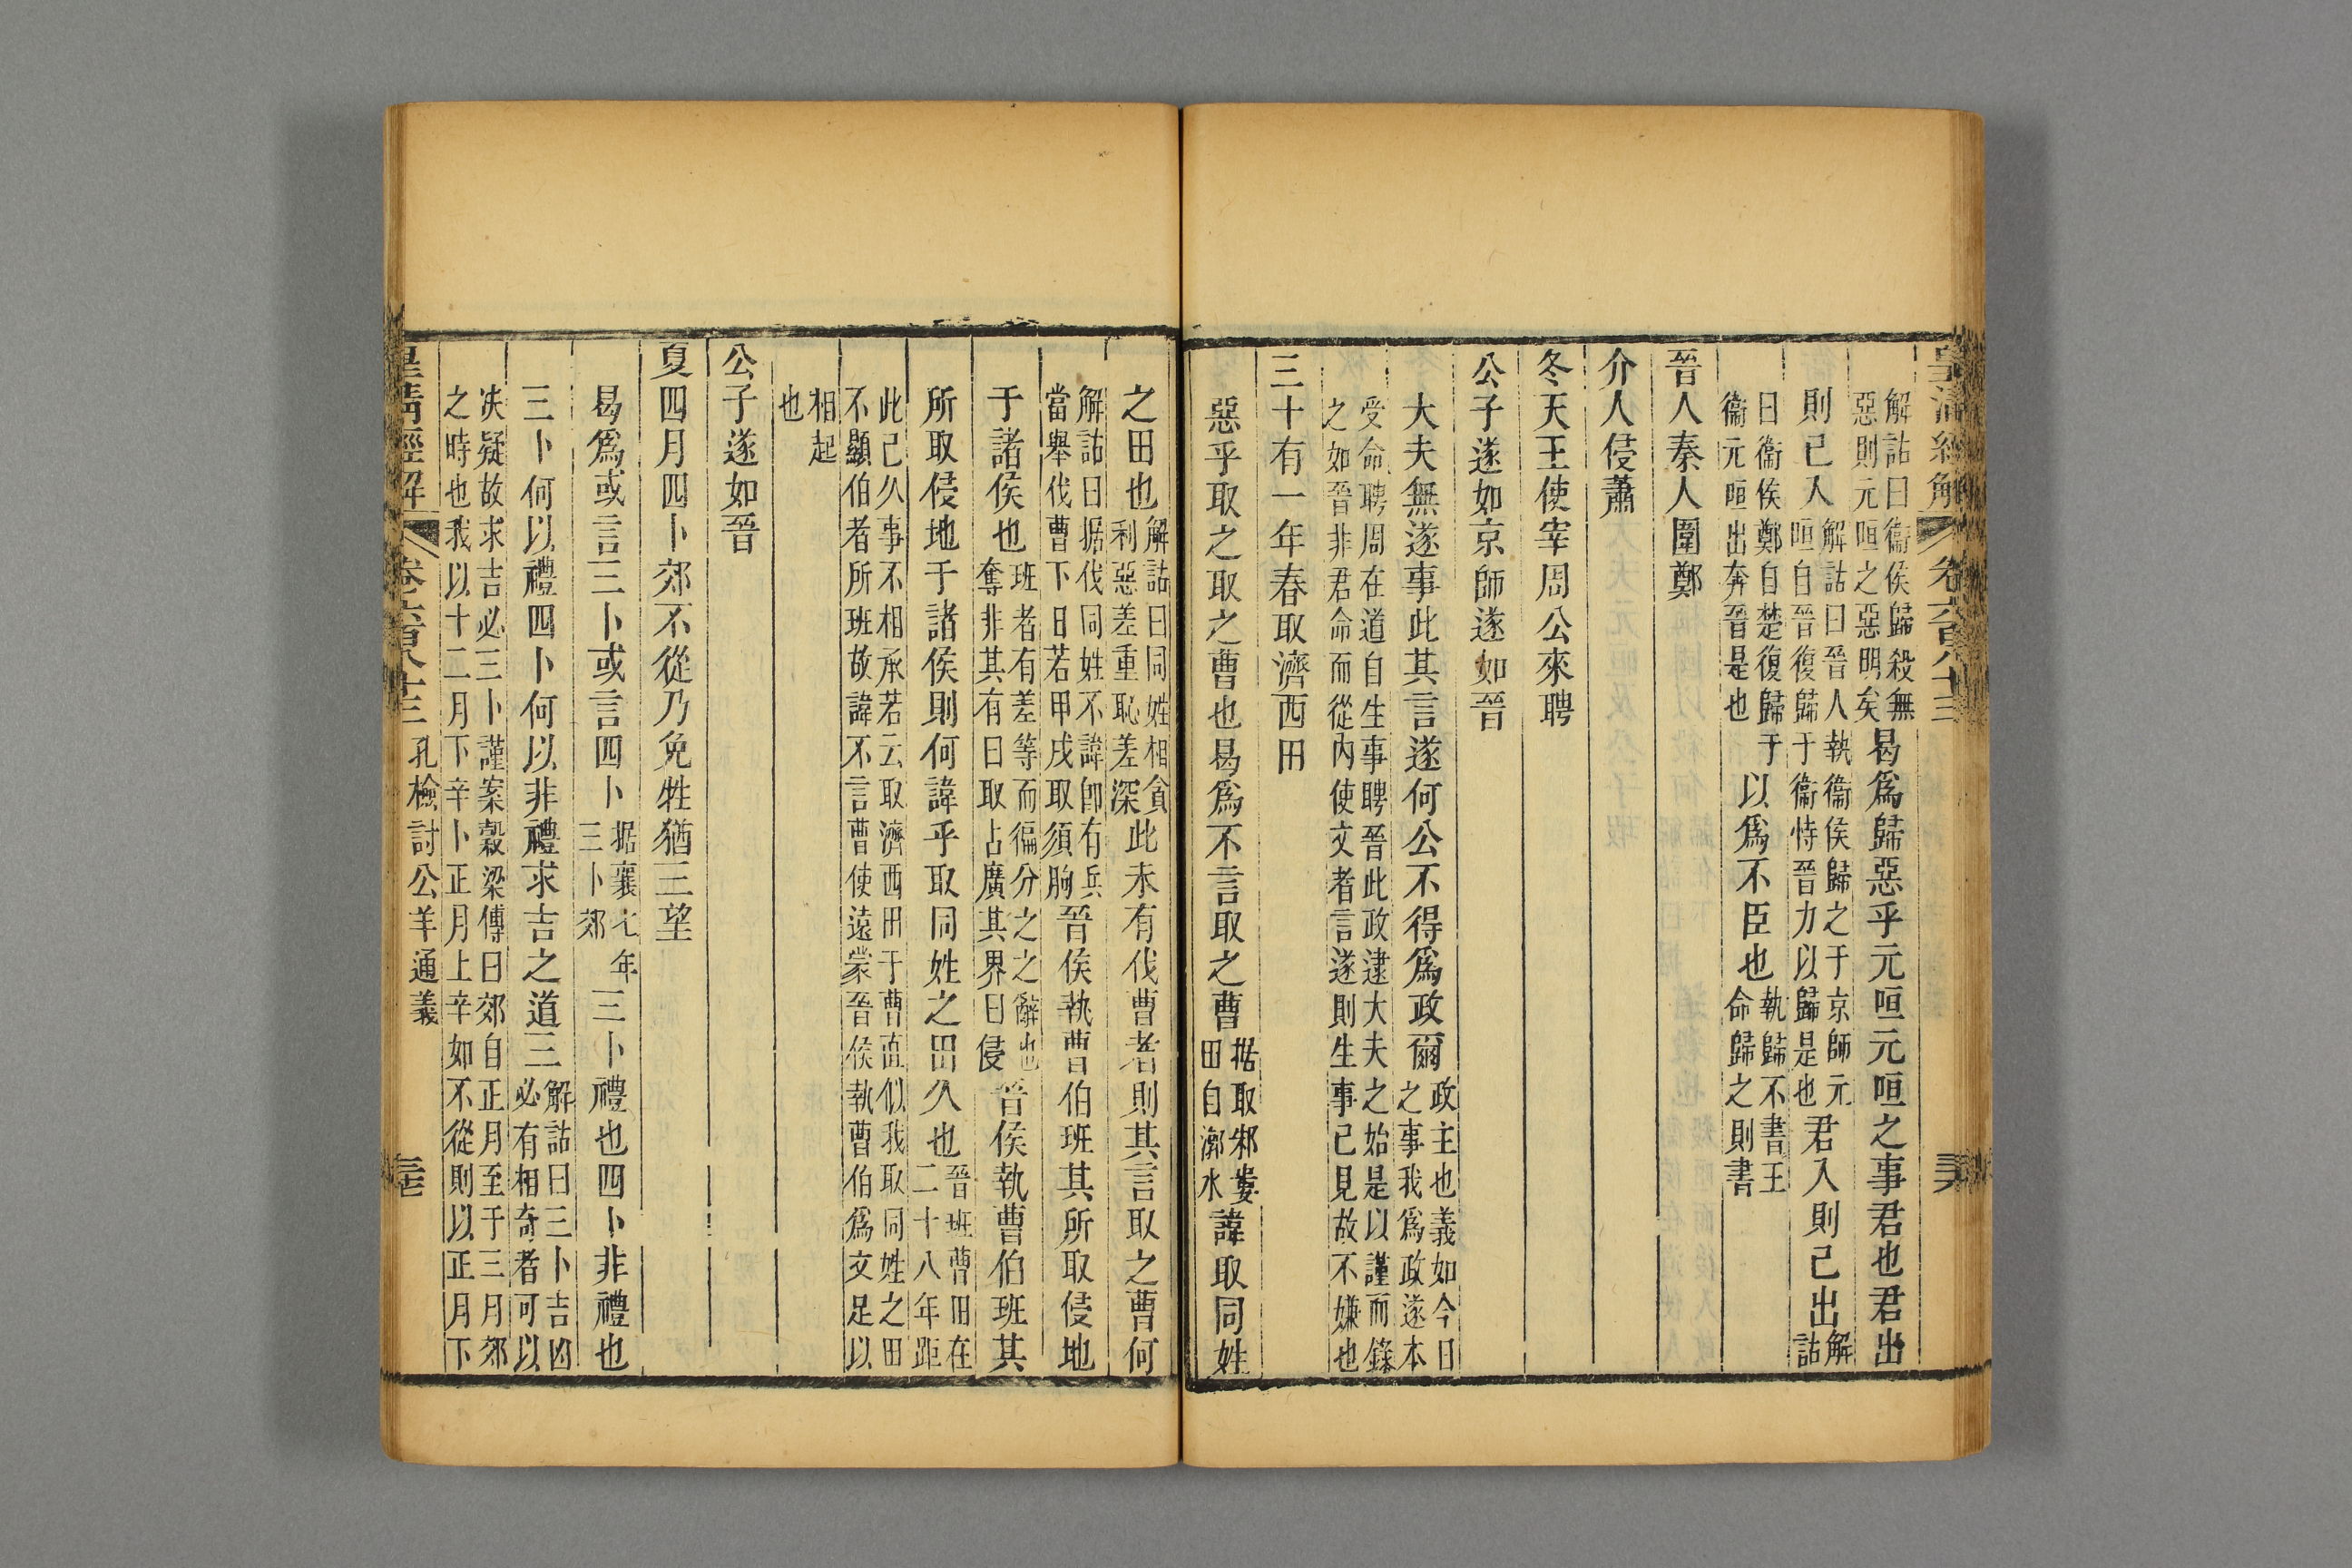 皇清經解 卷六百八十三 三六
解詁曰衞侯歸殺無
惡則元咺之惡明矣
曷爲歸惡乎元咺元咺之事君也君出
則已入
解詁曰晉人執衞侯歸之于京師元
咺自晉復歸于衞恃晉力以歸是也
君入則己出
解
詁
曰衞侯鄭自楚復歸于
衞元咺出奔晉是也
以爲不臣也
執歸不書王
命歸之則書
晉人秦人圍鄭
介人侵蕭
冬天王使宰周公來聘
公子遂如京師遂如晉
大夫無遂事此其言遂何公不得爲政爾
政主也義如今日
之事我爲政遂本
受命聘周在道自生事聘晉此政逮大夫之始是以謹而錄
之如晉非君命而從內使文者言遂則生事已見故不嫌也
三十有一年春取濟西田
惡乎取之取之曹也曷爲不言取之曹
据取邾婁
田自漷水
諱取同姓
之田也
解詁曰同姓相貪
利惡差重恥差深
此未有伐曹者則其言取之曹何
解詁曰据伐同姓不諱卽有兵
當舉伐曹下日若甲戌取須朐
晉侯執曹伯班其所取侵地
于諸侯也
班者有差等而徧分之之辭也
奪非其有曰取占廣其界曰侵
晉侯執曹伯班其
所取侵地于諸侯則何諱乎取同姓之田久也
晉班曹田在
二十八年距
此已久事不相承若云取濟西田于曹直似我取同姓之田
不顯伯者所班故諱不言曹使遠蒙晉侯執曹伯爲文足以
相起
也
公子遂如晉
夏四月四卜郊不從乃免牲猶三望
曷爲或言三卜或言四卜
据襄七年
三卜郊
三卜禮也四卜非禮也
三卜何以禮四卜何以非禮求吉之道三
解詁曰三卜吉凶
必有相奇者可以
决疑故求吉必三卜謹案穀梁傳曰郊自正月至于三月郊
之時也我以十二月下辛卜正月上辛如不從則以正月下
皇清經解 卷六百八十三 孔檢討公羊通義 三七